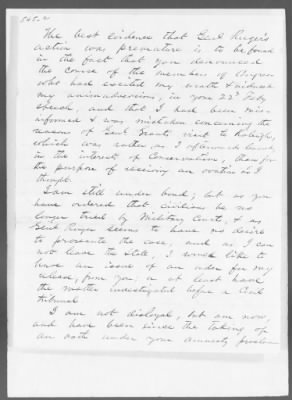 The best evidence that Genl Ruger's
action was premature is to be found
in the fact that you denounced
the course of the members of Congress
who had excited my wrath & induced
my animadversions, in your 22d Feby
speech, and that I had been mis-
informed & was mistaken concerning the
reasons of Genl Grants visit to Raleigh,
which was rather as I afterwards learned,
in the interest of Conservatism, than for
the purpose of receiving an ovation as I
thought.
I am still under bond; but as you
have ordered that civilians be no
longer tried by Military Courts, & as
Genl Ruger seems to have no desire
to prosecute the case, and as I can
not leave the State, I would like to
have an issue of an order for my
release, from you, or at least have
the matter investigated before a Civil
tribunal
I am not disloyal, but am now,
and have been since the taking of
an oath under your amnesty proclam